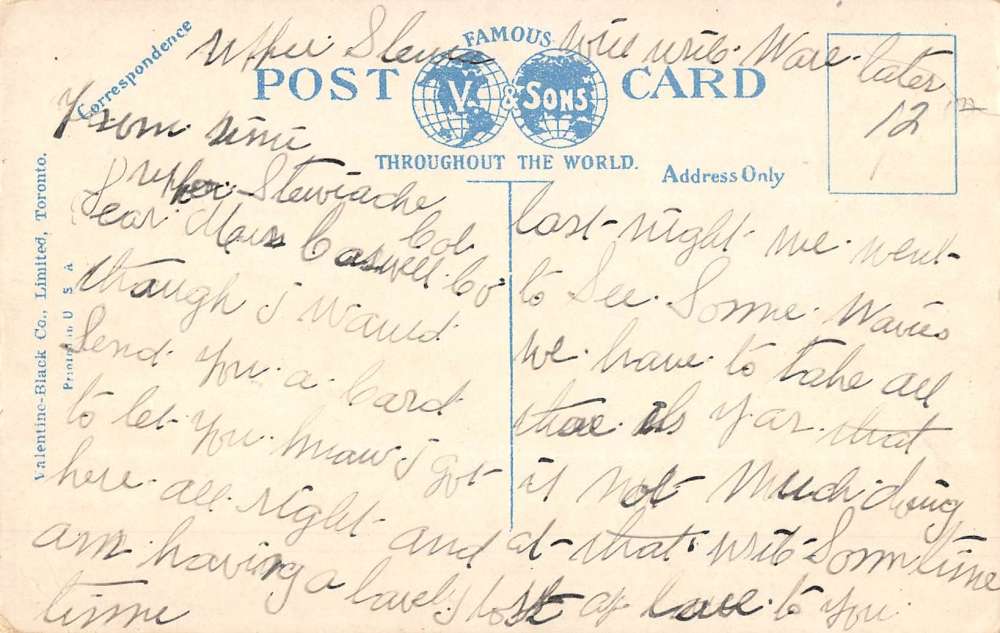 Upper Stewi
will write More later
12
Correspondence
FAMOUS
POST CARD
V. & SONS
THROUGHOUT THE WORLD.
Address Only
Valentine-Black Co., Limited, Toronto.
Printed in U S A
From
Upper Stewiacke
Col Co
Dear Caswell
though I
Send you a Card
to let you I got
here all right and
am having a lovely
time
last night we went
to See Some
we have to take all
that
is not Much doing
at that Sometime
of love to you